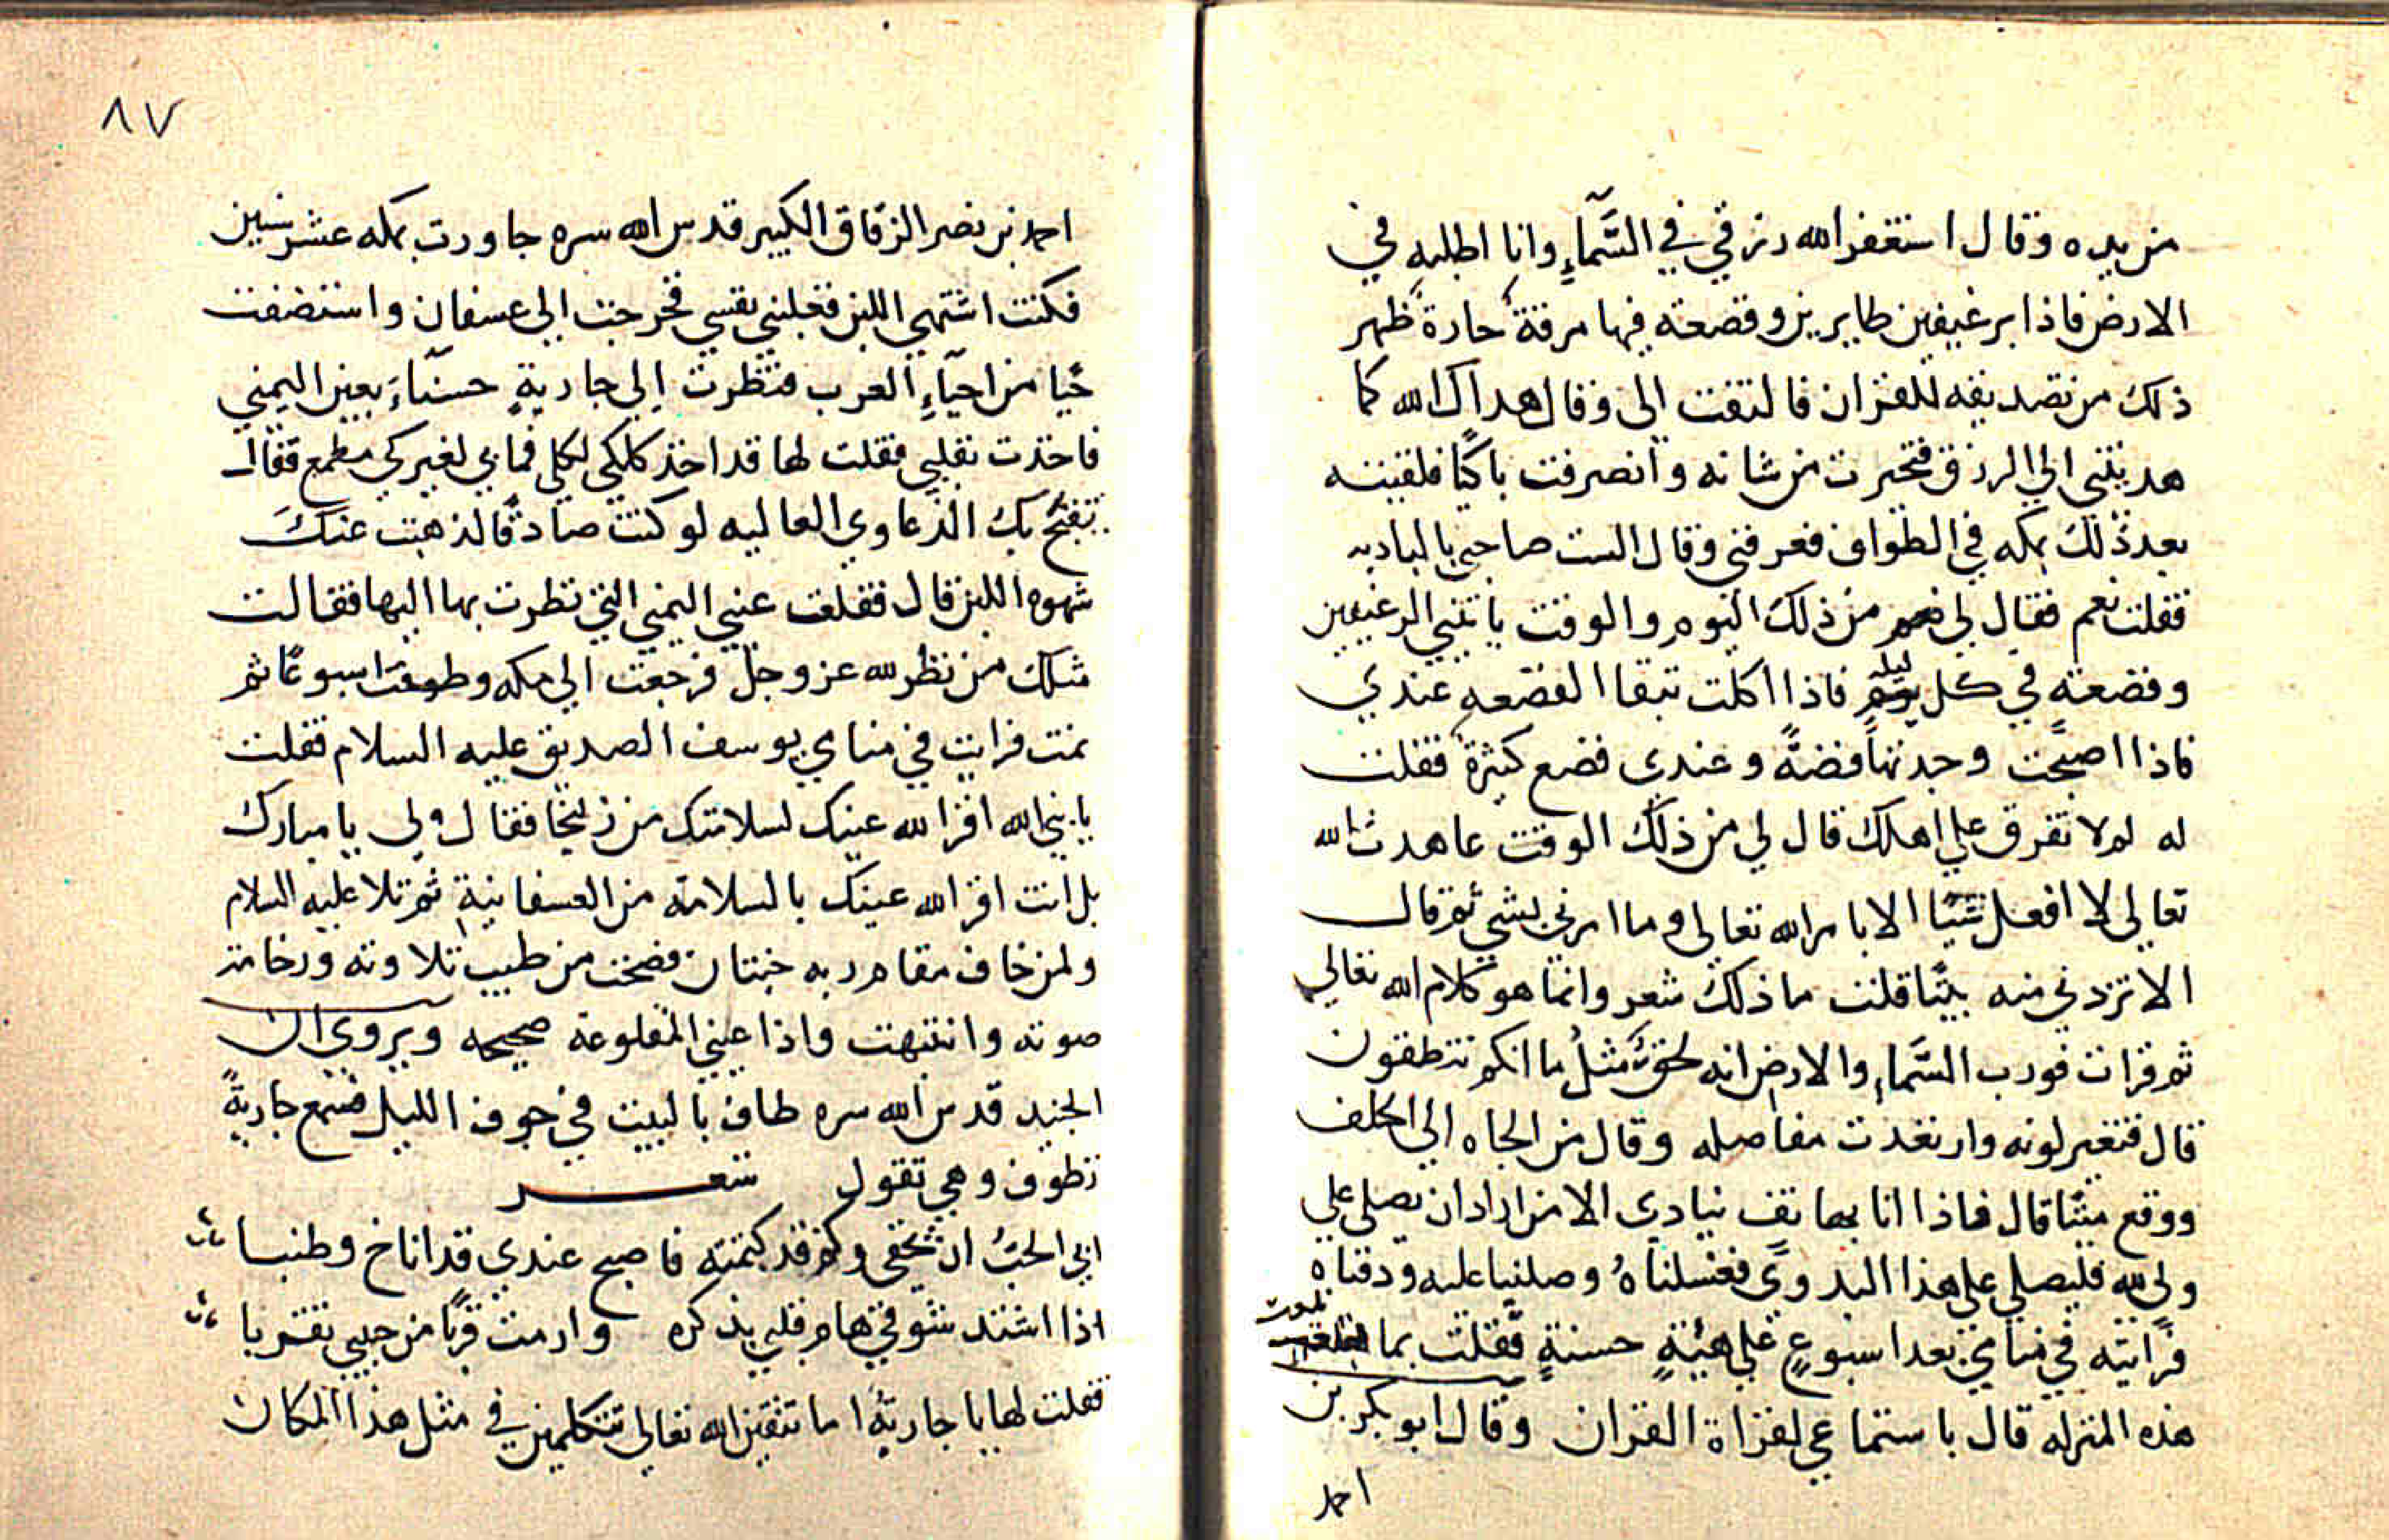 من يده وقال استغفر الله رزقي في السَّمآءِ وانا اطلبه في
الارض فاذا برغيفين طايرين وقصعه فيها مرقةٌ حارة ظهر
ذلك من تصديقه للقران فالتفت الى وقال هداك الله كما
هديتني الي الرزق فتحيرت من شانه وانصرفت باكيًا فلقيته
بعد ذلك بمكه في الطواف فعرفني وقال الست صاحبي بالباديه
فقلت نعم فقال لي من ذلك اليوم والوقت ياتني الرغيفين
وقصعته في كل ليله فاذا اكلت تبقا القصعه عندي
فاذا اصبحت وجدتها فضةً وعندي قصع كثيرة فقلت
له لم لا تفرق علي اهلك قال لي من ذلك الوقت عاهدت الله
تعالي لا افعل شيًا الا بامر الله تعالي وما امرني بشي ثم قال
الا تزدني منه بيتًا قلت ما ذلك شعر وانما هو كلام الله تعالي
ثم قرات فورب السَّماءِ والارض انه لحقٌ مثلُ ما انكم تنطقون
قال فتغير لونه وارتعدت مفاصله وقال من الجاه الي الحلف
ووقع ميتًا قال فاذا انا بهاتف ينادي الا من اراد ان يصلي علي
ولي لله فليصلي علي هذا البدوي فغسلناهُ وصلينا عليه ودفناه
فرايته في منامي بعد اسبوعٍ علي هيئةٍ حسنةٍ فقلت بما بلغت
هذه المنزله قال باستماعي لقراة القران وقال ابو بكر بن
احمد
٨٧
احمد بن نصر الزقاق الكبير قدس الله سره جاورت بمكه عشر سنين
فكنت اشتهي اللبن فغلبني نفسي فخرجت الي عسفان واستضفت
حيا من احيآءِ العرب فنظرت الي جاريةٍ حسنآء بعين اليمني
فاخذت بقلبي فقلت لها قد اخذ كلكي لكلي فما بي لغيركي مطمع فقالـ
تقبح بك الدعاوي العاليه لو كنت صادقًا لذهبت عنك
شهوه اللبن قال فقلعت عيني اليمني التي نظرت بها اليها فقالت
مثلك من نظر لله عز وجل فرجعت الي مكه وطوفت اسبوعًا ثم
نمت فرايت في منامي يوسف الصديق عليه السلام فقلت
يا نبي الله اقر الله عينك لسلامتك من زليخا فقال لي يا مبارك
بل انت اقر الله عينك بالسلامة من العسفانيةِ ثم تلا عليه السلام
ولمن خاف مقام ربه جنتان فصحت من طيب تلاوته ورخامة
صوته وانتبهت واذا عيني المقلوعة صحيحه ويروي ان
الجنيد قدس الله سره طاف بالبيت في جوف الليل فسمع جاريةً
تطوف وهي تقول شعر
ابي الحبُ ان يخفي وكم قد كتمته فاصبح عندي قد اناخ وطنبا
اذا اشتد شوقي هام قلبي بذكره وارمت قربًا من حبيبي تقربا
فقلت لها يا جاريةُ اما تتقين الله تعالي تتكلمين في مثل هذا المكان